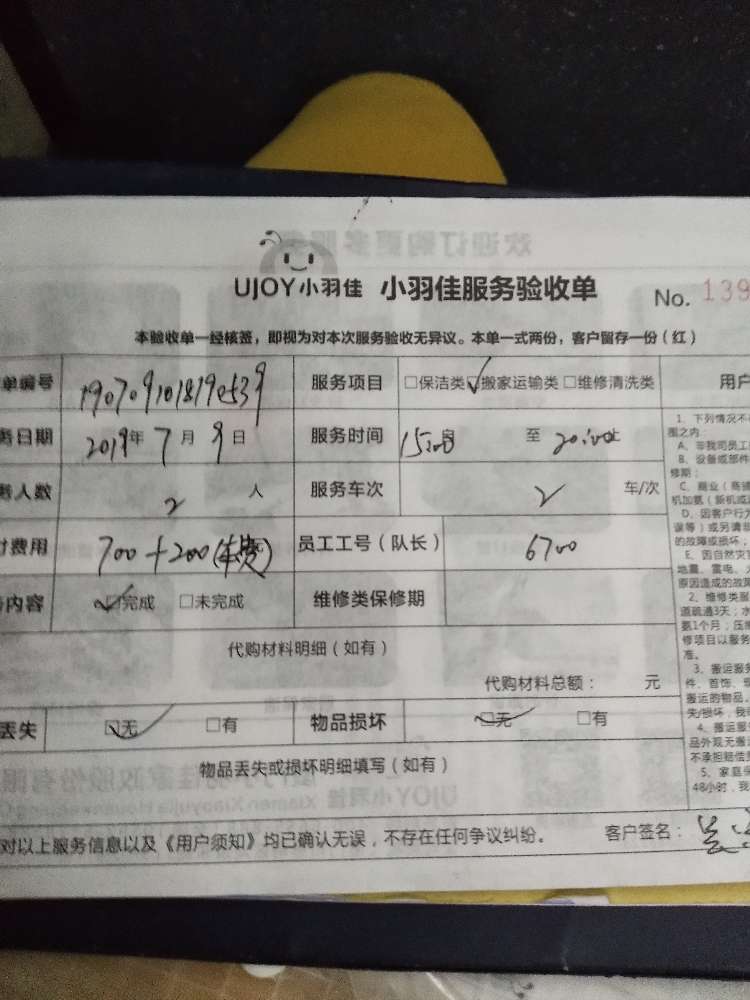 欢迎订购更多服
UJOY小羽佳 小羽佳服务验收单 No. 139
本验收单一经核签，即视为对本次服务验收无异议。本单一式两份，客户留存一份（红）
单编号 服务项目 □保洁类 ☑搬家运输类 □维修清洗类 用户
务日期 2019年7月9日 服务时间 至
务人数 2 人 服务车次 2 车/次
付费用 700+200 员工工号（队长） 6700
务内容 ☑完成 □未完成 维修类保修期
代购材料明细（如有）
代购材料总额： 元
丢失 ☑无 □有 物品损坏 ☑无 □有
物品丢失或损坏明细填写（如有）
对以上服务信息以及《用户须知》均已确认无误，不存在任何争议纠纷。 客户签名：
1、下列情况不
围之内：
A、非我司员工
B、设备或部件
修期；
C、商业（商铺
机加氨（新机或
D、因客户行为
误等）或另请
的故障或损坏；
E、因自然灾害
地震、雷电、
原因造成的故障
2、维修类服
道疏通3天；水
氨1个月；压
修项目以服务
准。
3、搬运服务
件、首饰、现
搬运的物品，
失/损坏，我
4、搬运服
品外观无
不承担赔偿
5、家庭保
48小时，我